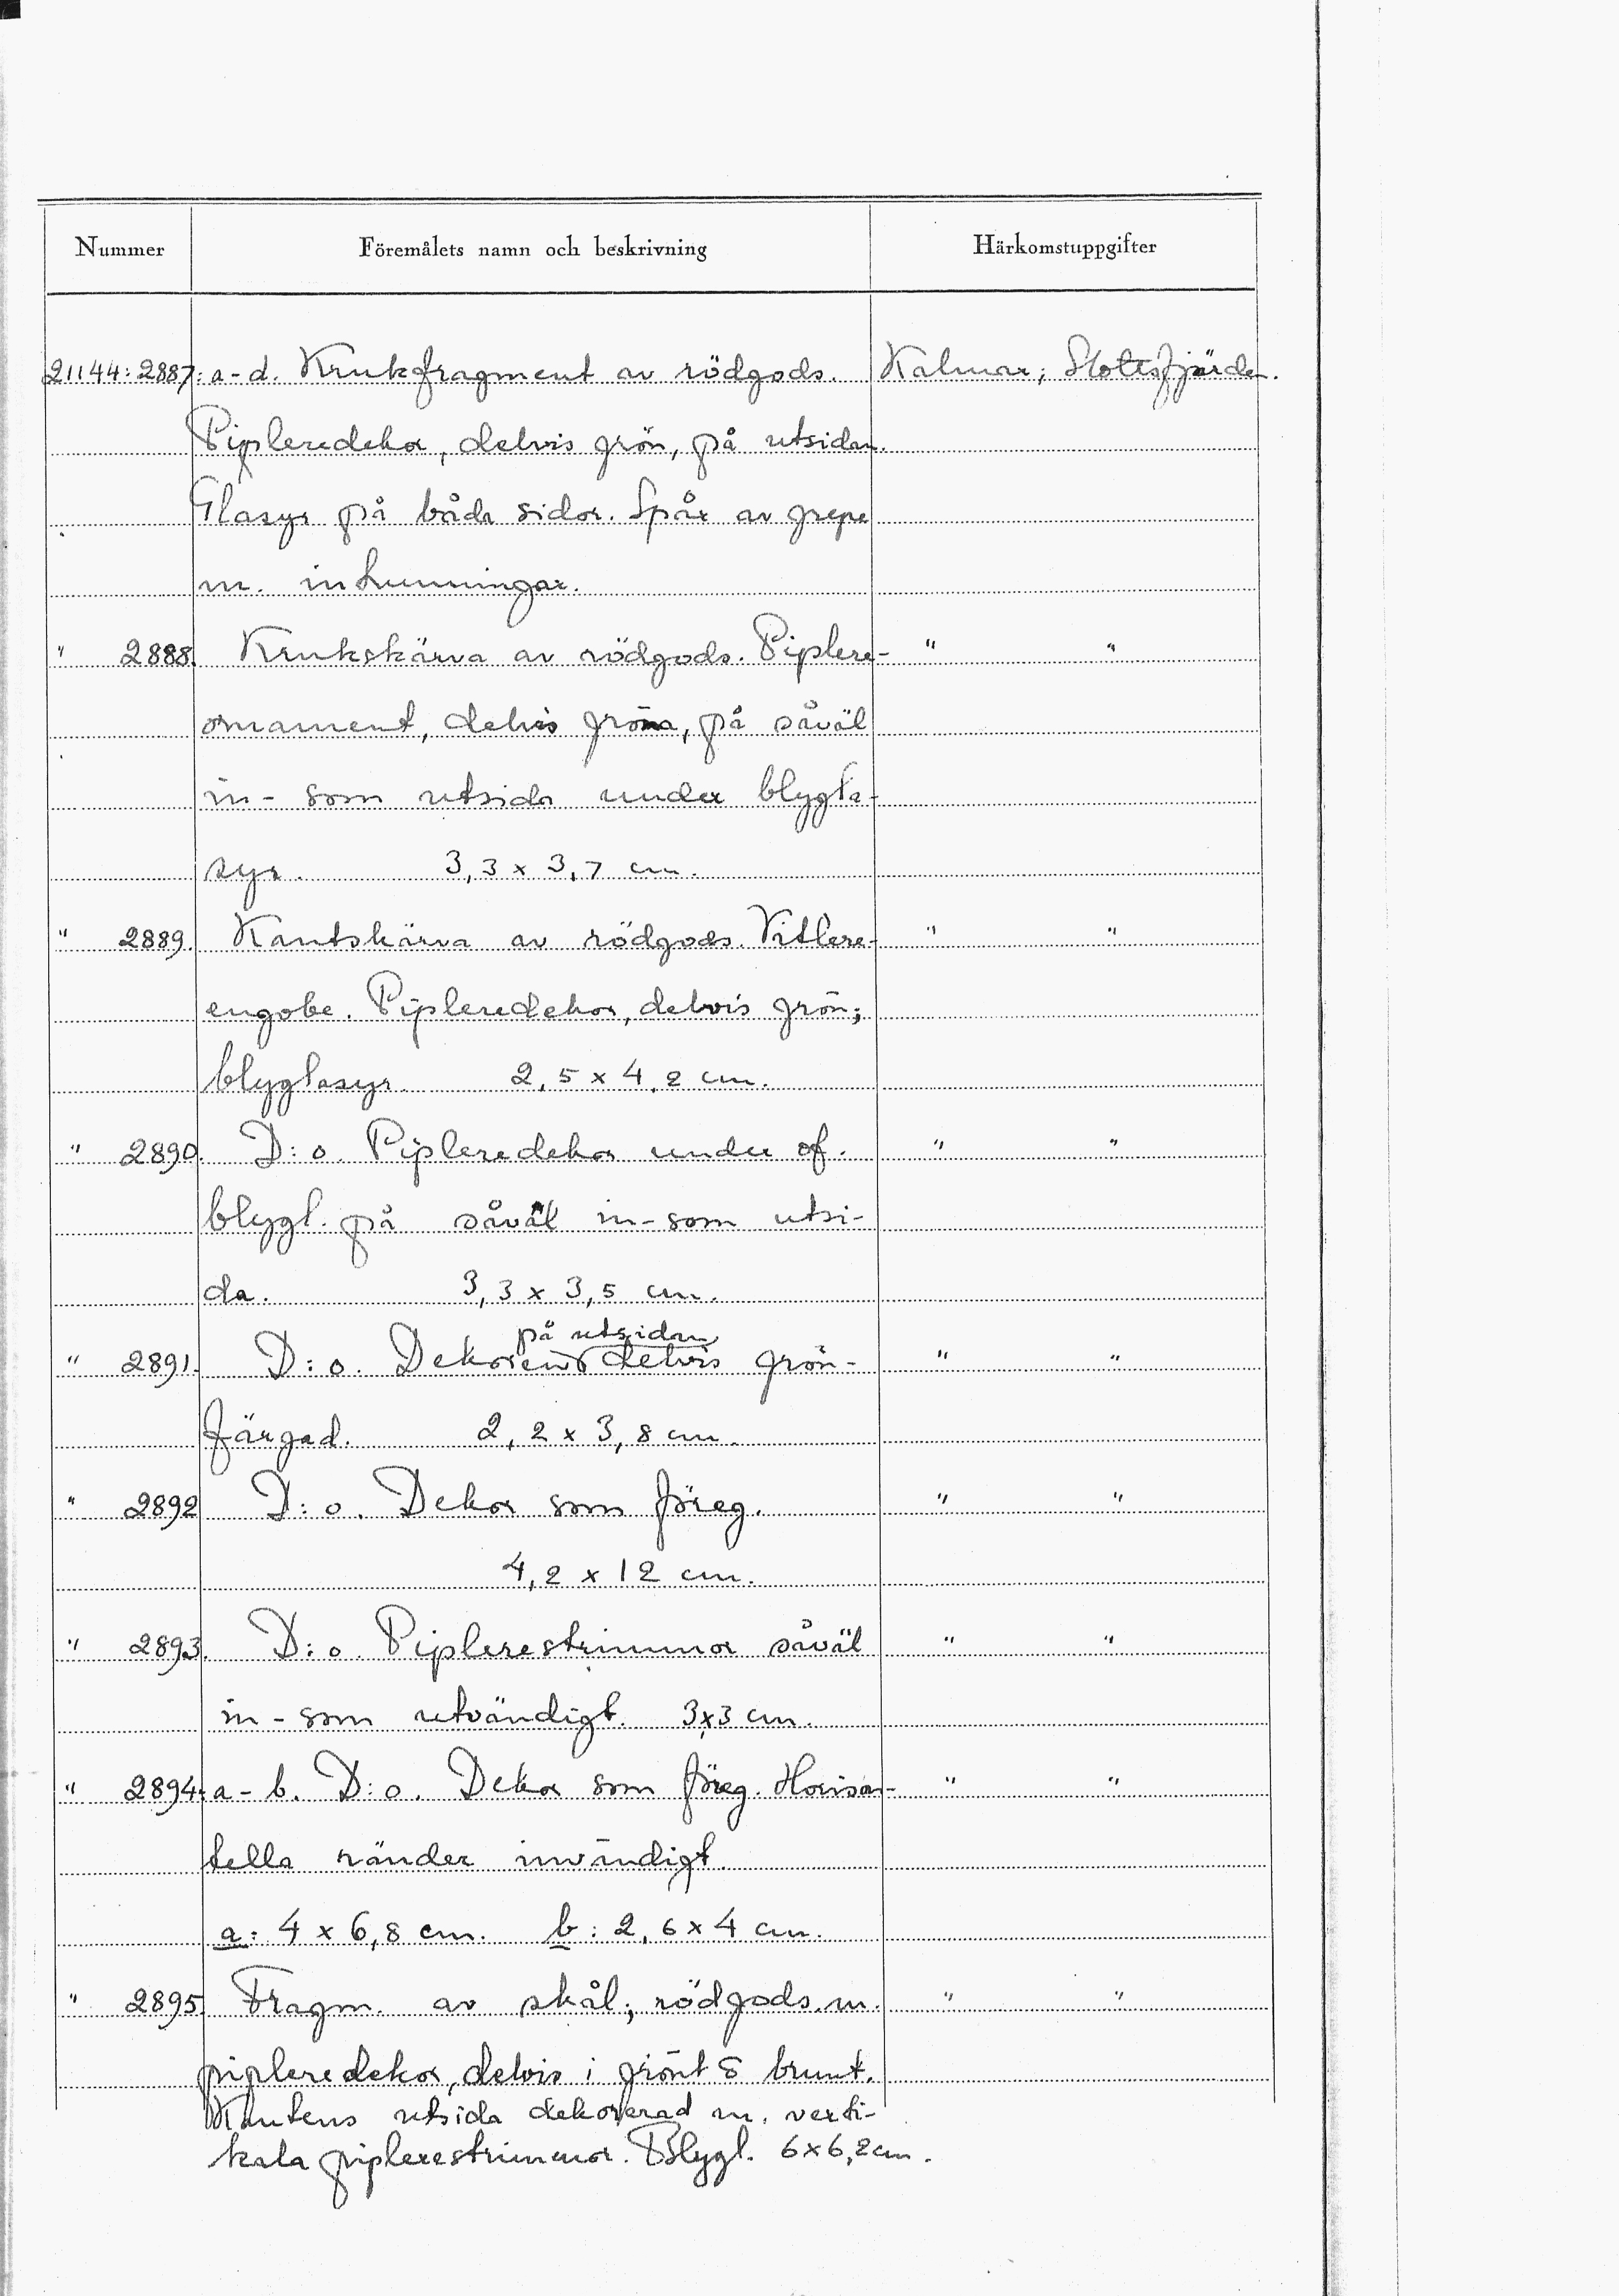 Nummer Föremålets namn och beskrivning Härkomstuppgifter
21144:2887: a-d. Krukfragment av rödgods. Kalmar; Slottsfjärden.
Pipleredekor, delvis grön, på utsidan.
Glasyr på båda sidor. Spår av grepe
m. intumningar.
" 2888. Krukskärva av rödgods. Piplere- " "
ornament, delvis gröna, på såväl
in- som utsida under blygla-
syr. 3,3 x 3,7 cm.
" 2889. Kantskärva av rödgods. Vitlere- " "
engobe. Pipleredekor, delvis grön;
blyglasyr. 2,5 x 4,2 cm.
" 2890. D:o. Pipleredekor under of. " "
blygl. på såväl in-som utsi-
da. 3,3 x 3,5 cm.
på utsidan
" 2891. D:o. Dekoren delvis grön- " "
färgad. 2,2 x 3,8 cm.
" 2892 D:o. Dekor som föreg. " "
4,2 x 12 cm.
" 2893. D:o. Piplerestrimmor såväl " "
in-som utvändigt. 3x3 cm.
" 2894: a-b. D:o. Dekor som föreg. Horison- " "
tella ränder invändigt.
a: 4 x 6,8 cm. b: 2,6 x 4 cm.
" 2895. Fragm. av skål; rödgods m. " "
pipleredekor, delvis i grönt & brunt.
Kantens utsida dekorerad m. verti-
kala piplerestrimmor. Blygl. 6x6,2cm.